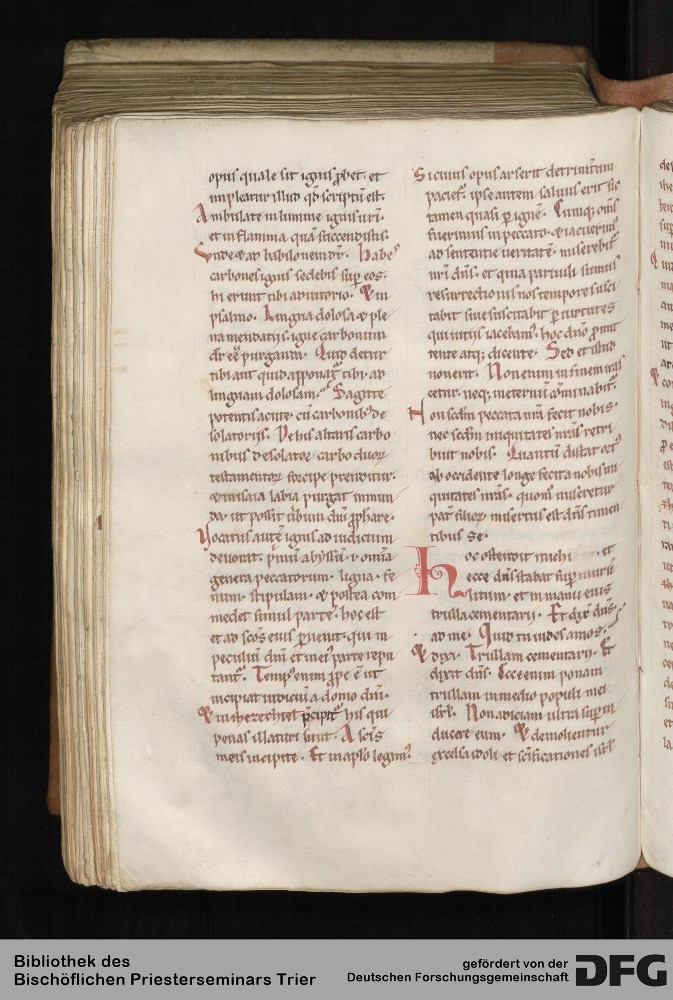 opus quale sit ignis p̱bet. et
impleatur illud qđ scriptū est.
Ambulate in lumine ignis urī.
et in flamma quā succendistis.
Unde & ad babilonem dr̄. Habeˢ
carbones ignis sedebis sup̄ eos.
hi erunt tibi adiutorio. & in
psalmo. Lingua dolosa & ple
na mendatiis. igne carbonum
dr̄ eē purganda. Quid detur
tibi aut quid apponat᷑ tibi. ad
linguam dolosam. Sagitte
potentis acute. cū carbonib; de
solatoriis. De his altaris carbo
nibus desolatoꝝ carbo duoꝝ
testamentoꝝ forcipe prenditur.
& m̄ isaia labia purgat inmun
da. ut possit uerbum dn̄i p̱phare.
Uocatus autē ignis ad iudicium
deuorat. p̱mū abyssū. i. omīa
genera peccatorum. ligna. fe
num. stipulam. & postea com
medet simul partē. hoc est
et ad scōs eius p̱uenit. qui in
peculiū dn̄i et in eiꝰ parte repu
tant᷑. Temp; enim p̱pe ē ut
incipiat iudiciū a domo dn̄i.
& in hiezechiel p̄cipit᷑ his qui
penas illaturi sunt. A scīs
meis incipite. Et in ap̱lo legimꝰ
Si cuius opus arserit detrimtūm
paciet᷑. ipse autem saluus erit sic
tamen quasi p̱ ignē. Cumq; om̄s
fuerimus in peccato. & iacuerimꝰ
ad sententie ueritatē. miserebit᷑
nr̄i dn̄s. et quia paruuli sumus
resurrectionis nos tempore susci
tabit siue suscitabit p̱ uirtutes
qui uitiis iacebamꝰ. hoc dn̄o p̱mit
tente atq; dicente. Sed et illud
nouerit. Non enim in finem iras
cetur. neq; in eternū cōminabit᷑.
Non scdm̄ peccata nrā fecit nobis.
nec scdm̄ iniquitates nrās retri
buit nobis. Quantū distat ortꝰ
ab occidente longe fecit a nobis ini
quitates nrās. quom̄ miseretur
pat᷑ filioꝝ misertus est dn̄s timen
tibus se.
Hoc ostendit michi et
ecce dn̄s stabat sup̄ murū
litum. et in manu eius
trulla cementarii. Et dx̄ dn̄s
ad me. Quid tu uides amos.
& dixi. Trullam cementarii. Et
dixit dn̄s. Ecce enim ponam
trullam in medio populi mei
isrl̄. Non adiciam ultra sup̄in
ducere eum. & demolientur
excelsa idoli et scīficationes isrl̄
Bibliothek des
Bischöflichen Priesterseminars Trier
gefördert von der
Deutschen Forschungsgemeinschaft
DFG